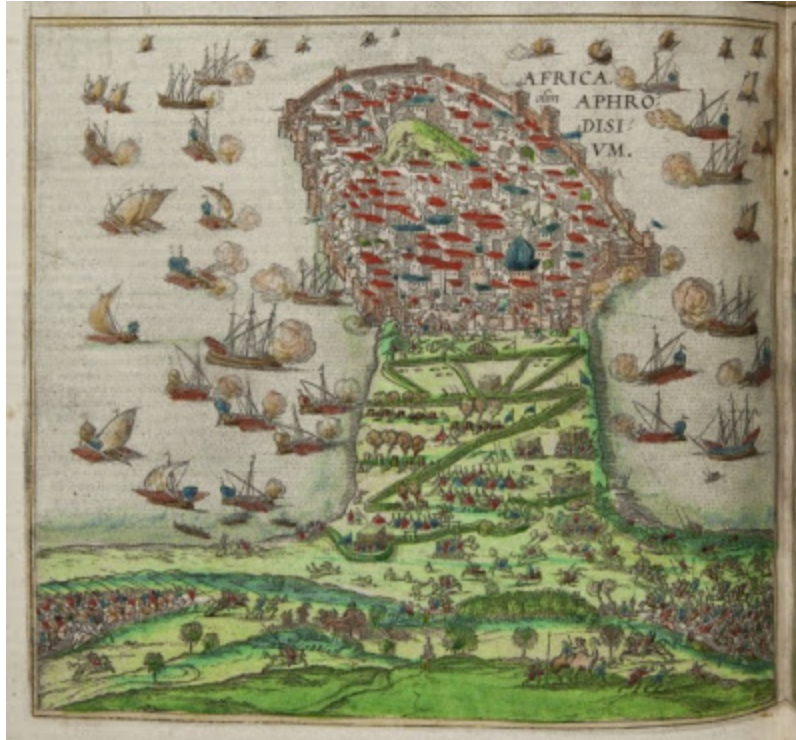 AFRICA.
olim APHRO
DISI
VM.